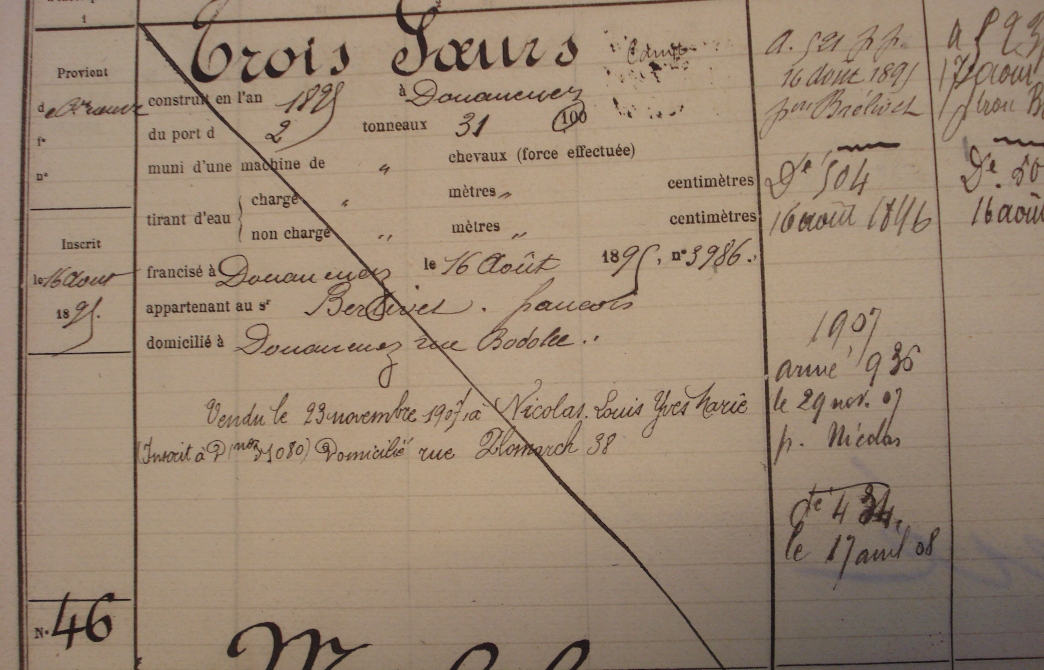 Provient
Inscrit
le 16 Aout
1895
N° 46
Trois Sœurs
construit en l'an 1895 à Douarnenez
du port d 2 tonneaux 31 100
muni d'une machine de " chevaux (force effectuée)
tirant d'eau
chargé " mètres " centimètres
non chargé " mètres " centimètres
francisé à Douarnenez le 16 Août 1895, n° 3986.
appartenant au sr francois
domicilié à Douarnenez rue
Vendu le 23 novembre 1907, à Nicolas Louis Yves Marie
(Inscrit à Dnez 31080) Domicilié rue 38
a. 521
16 aout 1895
pou Brélivet
Dé 504
16 août 1896
1907
armé 936
le 29 nov. 07
p. Nicolas
dté 434
le 17 avril 08
a 523
Dé. 50
16 août